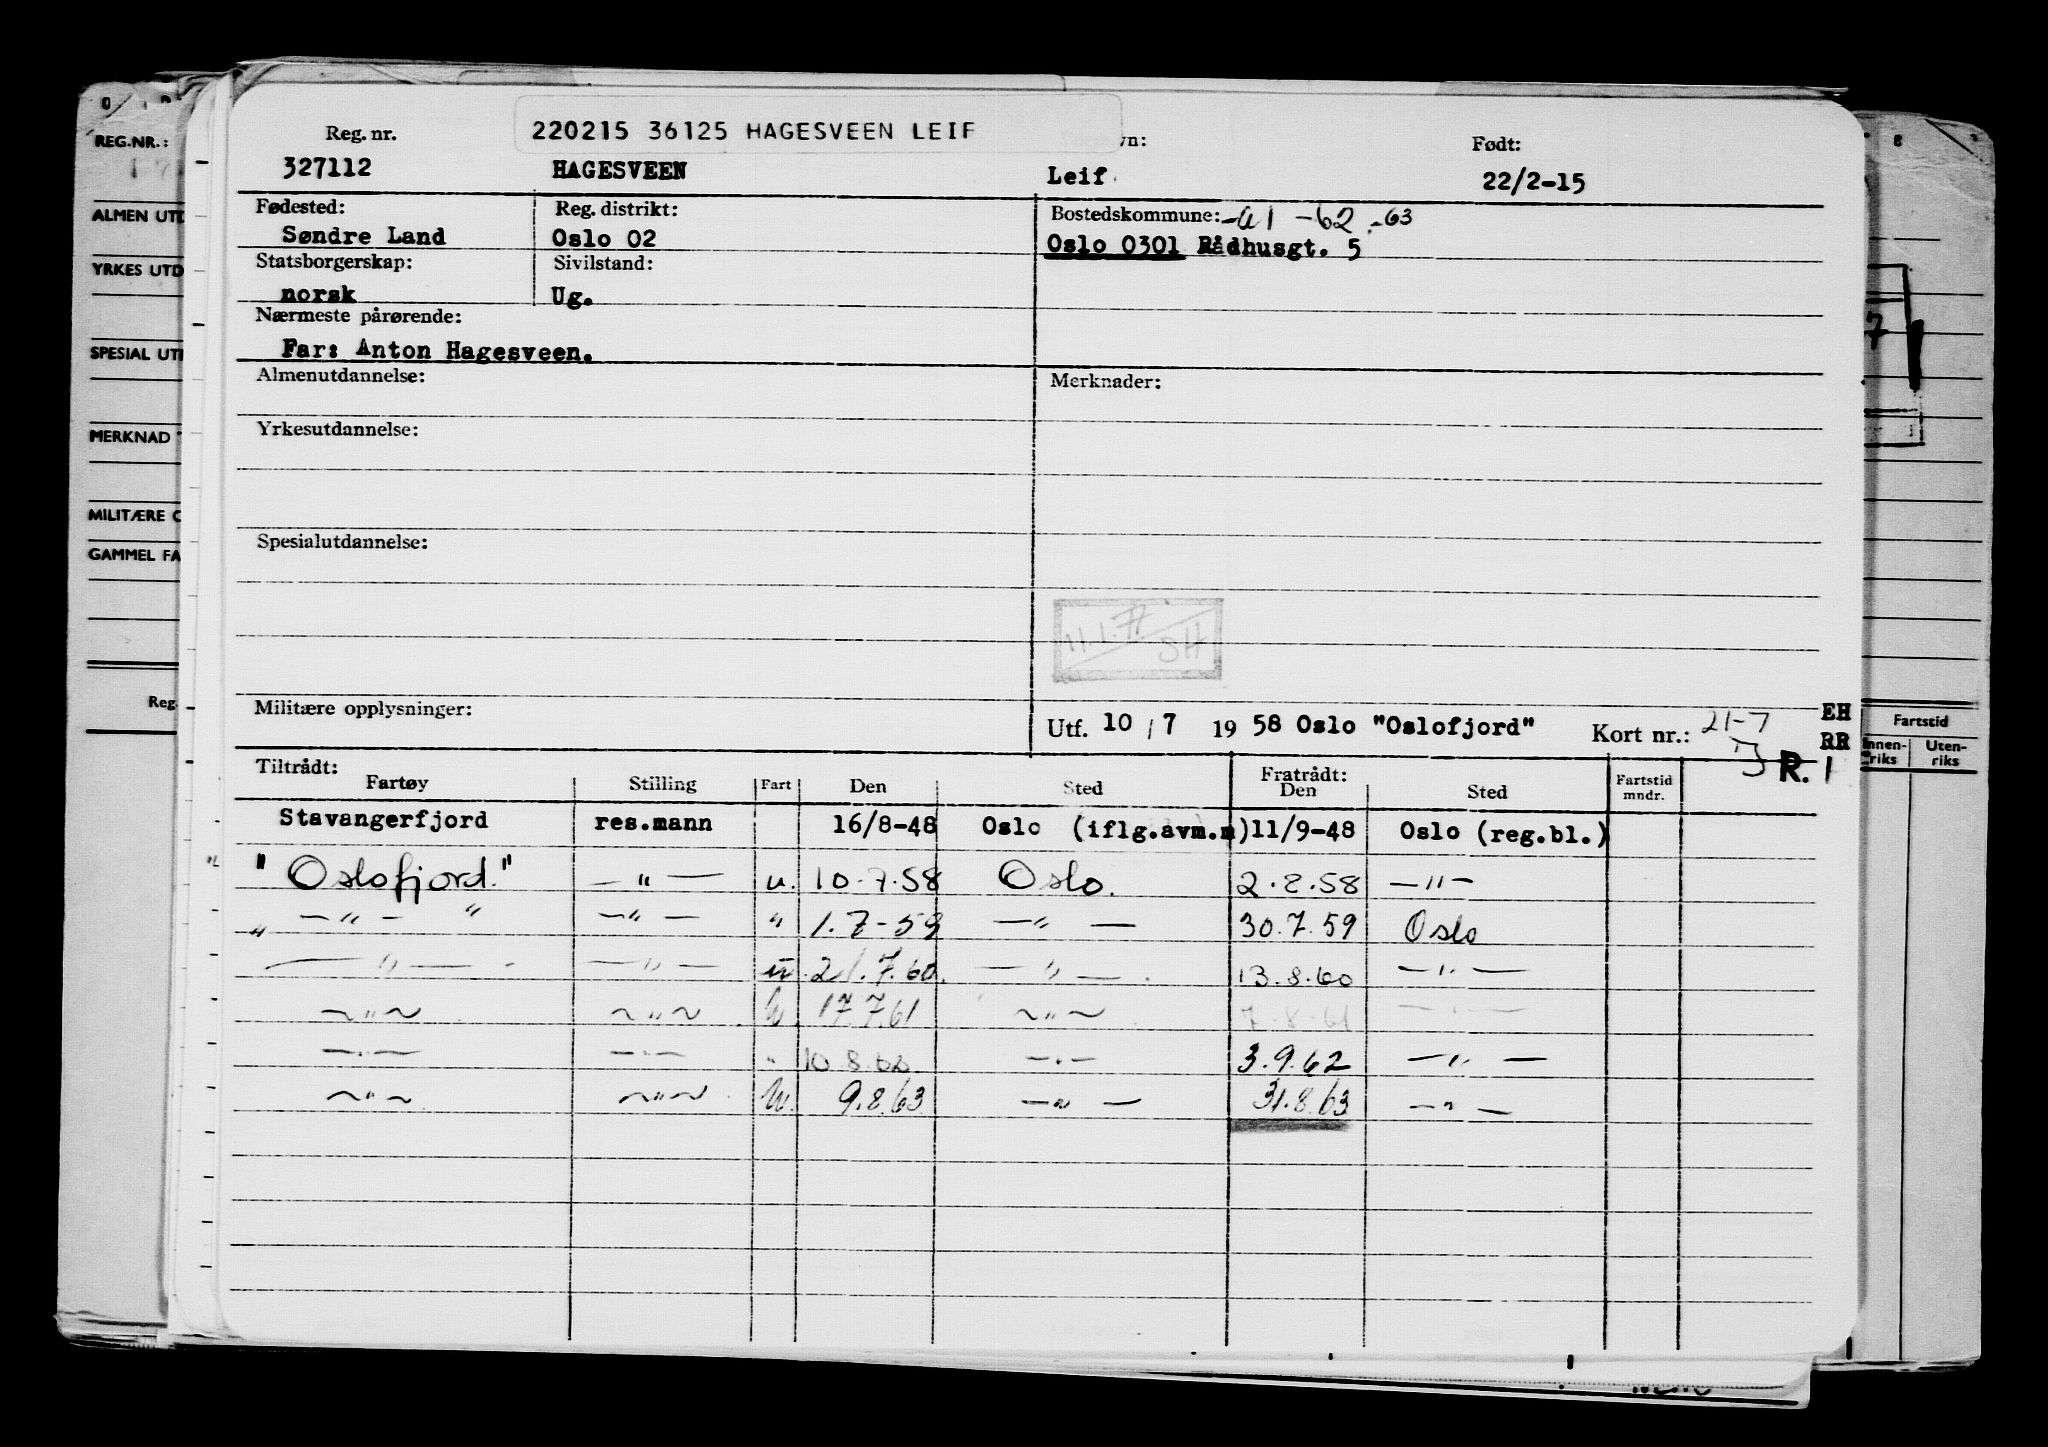 220215 36125 HAGESVEEN LEIF
Reg. nr. Født:
327112 HAGESVEEN Leif 22/2-15
Fødested: Reg. distrikt: Bostedskommune: -61 -62 -63
Søndre Land Oslo 02 Oslo 0301 Rådhusgt. 5
Statsborgerskap: Sivilstand:
norsk Ug.
Nærmeste pårørende:
Far: Anton Hagesveen.
Almenutdannelse: Merknader:
Yrkesutdannelse:
Spesialutdannelse:
11.1.77 SH
Militære opplysninger: Utf. 10 / 7 19 58 Oslo "Oslofjord" Kort nr.: 21-7 EH
RR
R. 1
Tiltrådt: Fratrådt:
Fartøy Stilling Fart Den Sted Den Sted Fartstid mndr.
Stavangerfjord res.mann 16/8-48 Oslo (iflg.avm.m) 11/9-48 Oslo (reg.bl.)
"Oslofjord." — " — u. 10.7.58 Oslo. 2.8.58 — " —
" — " — " — " — " 1.7-59 — " — 30.7.59 Oslo
— " — — " — u. 21.7.60. — " — 13.8.60 — " —
~ " ~ ~ " ~ u. 17.7.61 ~ " ~ 7.8.61 — " —
— " — — " — " 10.8.62 — " — 3.9.62 — " —
~ " ~ ~ " ~ u. 9.8.63 — " — 31.8.63 — " —
REG.NR.:
ALMEN UTD
YRKES UTD
SPESIAL UT
MERKNAD
MILITÆRE
GAMMEL FA
Reg.
7
Fartstid
Innen-riks Uten-riks